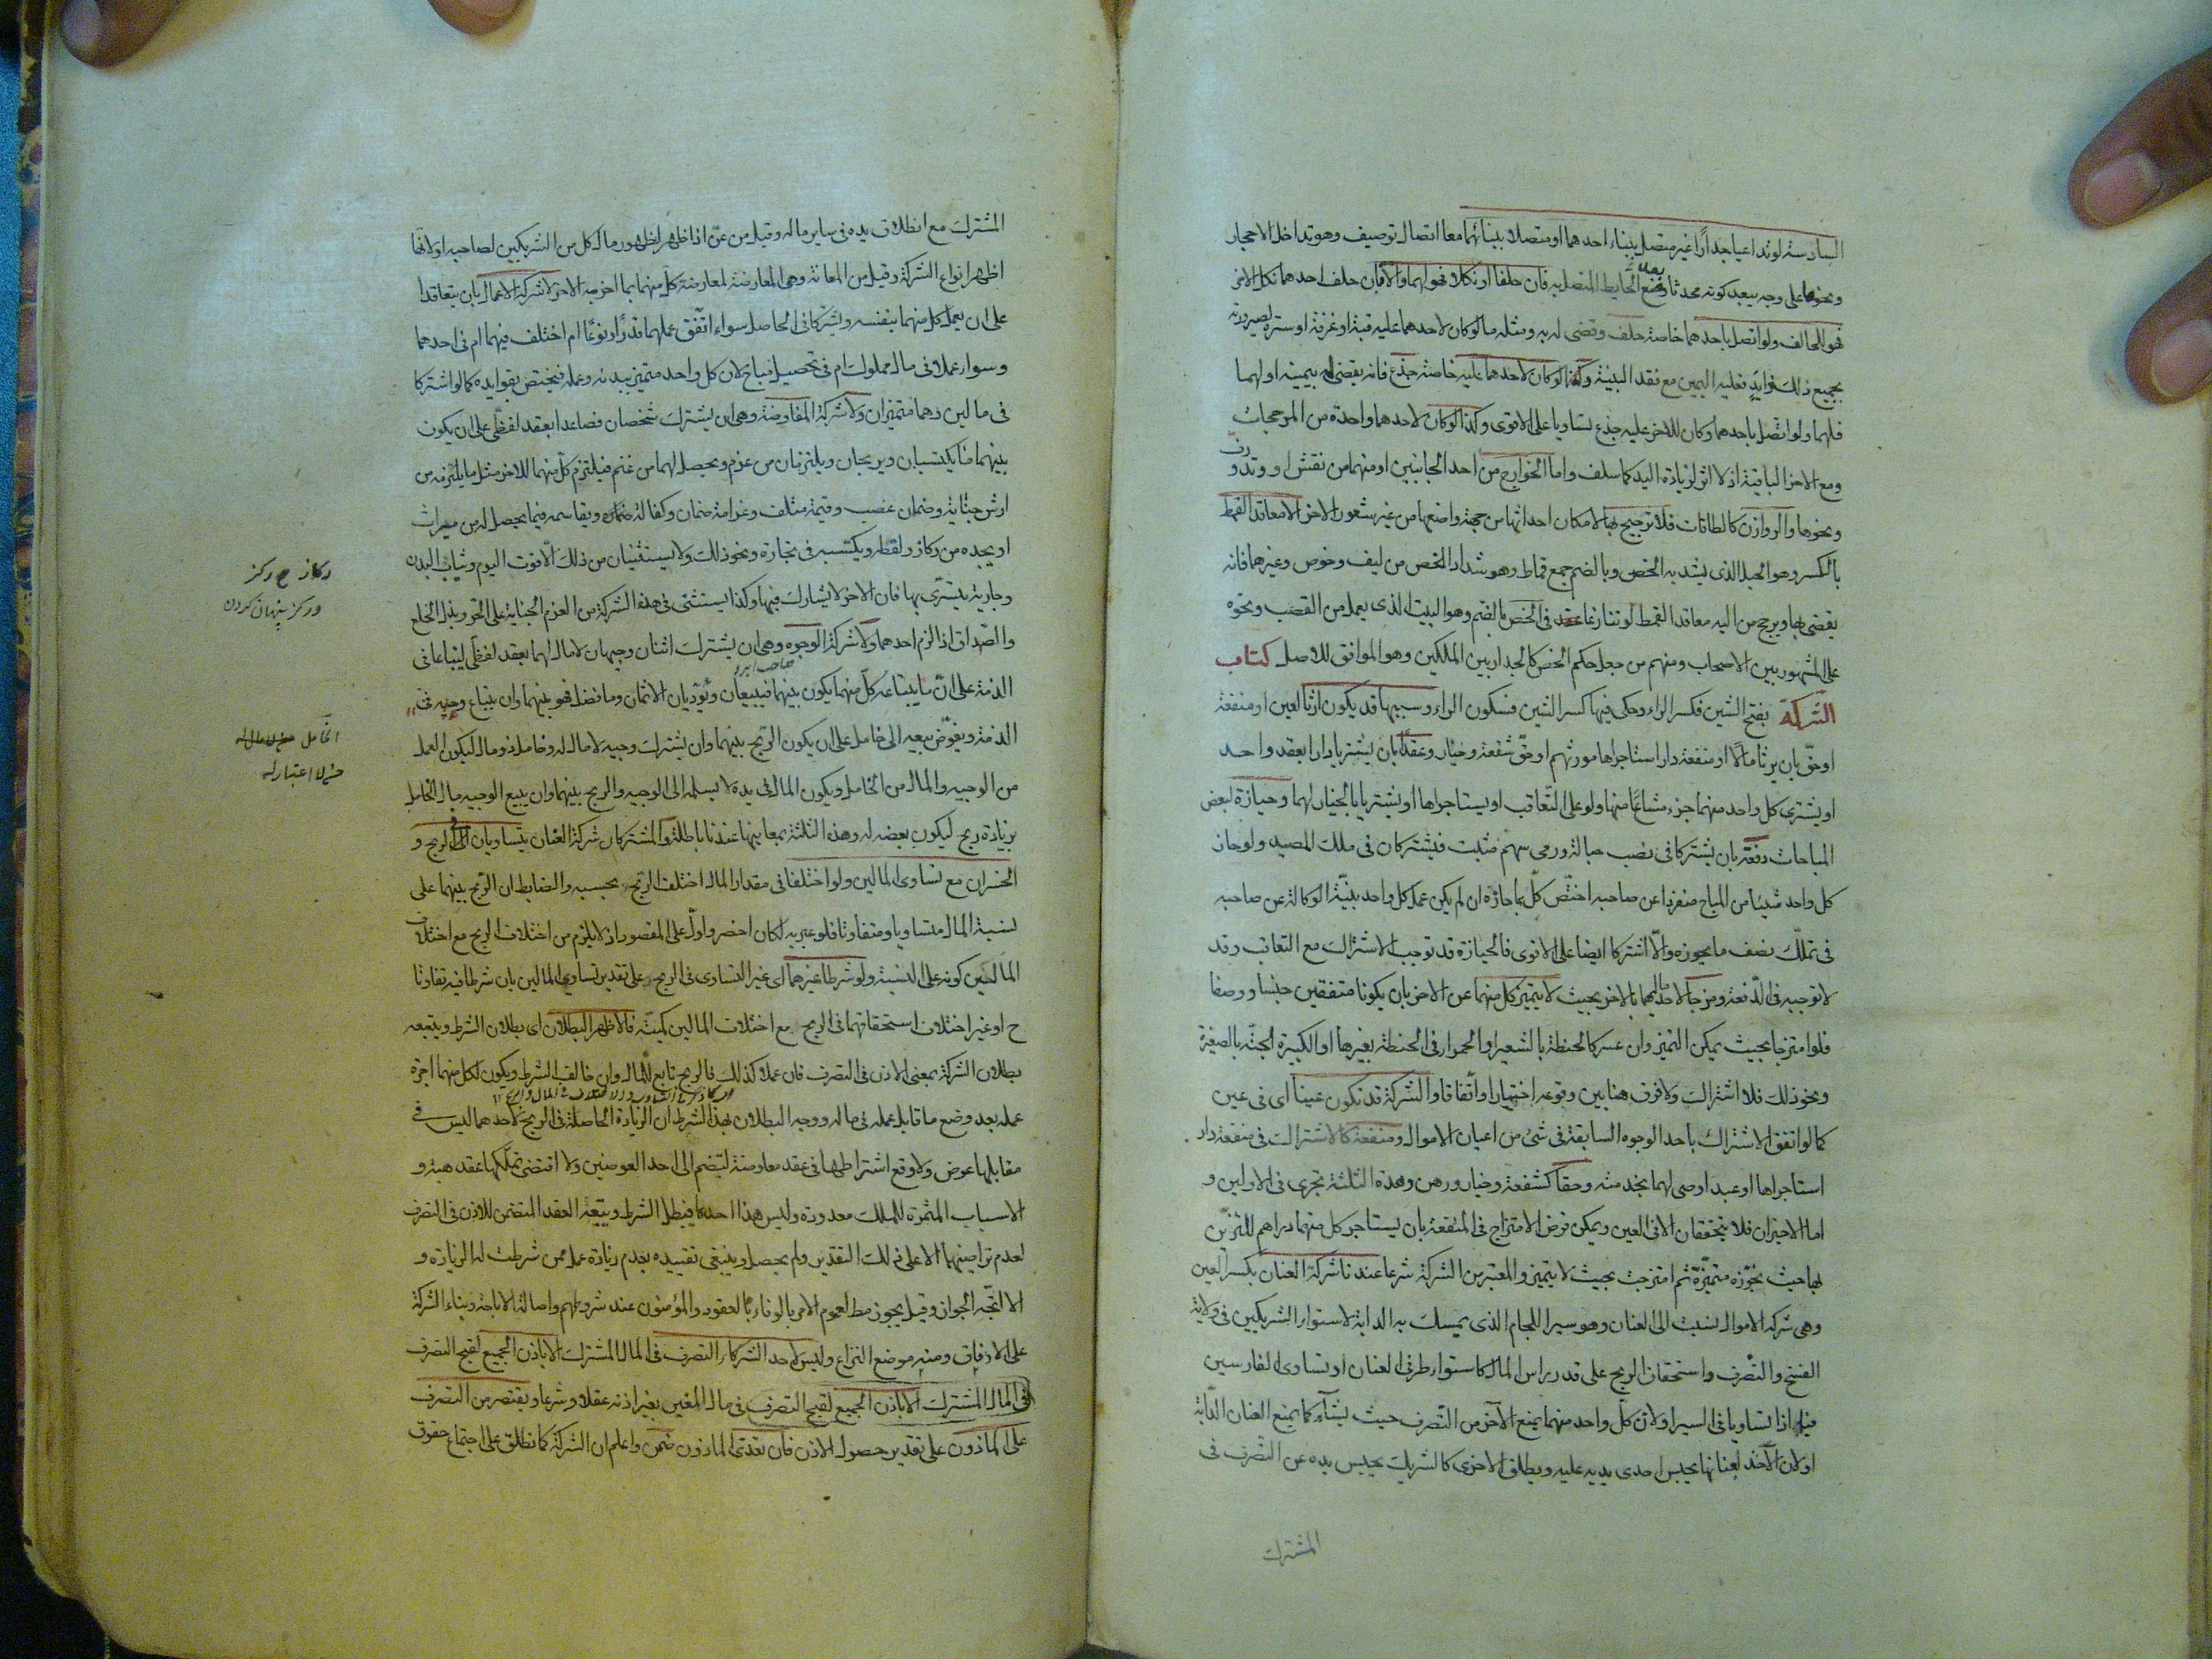 السادسة لو تداعيا جدارا غير متصل ببناء احدهما او متصلا ببنائهما معا اتصال ترصيف وهو تداخل الاحجار
ونحوها على وجه يبعد كونه محدثا بعد وضع الحايط المتصل به فان حلفا او نكلا فهو لهما والا فان حلف احدهما ونكل الاخر
فهو للحالف ولو اتصل باحدهما خاصة حلف وقضى له به ومثله ما لو كان لاحدهما عليه قبة او غرفة او سترة لصيرورته
بجميع ذلك ذا يد فعليه اليمين مع فقد البينة وكذا لو كان لاحدهما عليه خاصة جذع فانه يقضى له بيمينه او لهما
فلهما ولو اتصل باحدهما وكان للاخر عليه جذع تساويا على الاقوى وكذا لو كان لاحدهما واحدة من المرجحات
ومع الاخر الباقية اذ لا اثر لزيادة اليد كما سلف واما الخوارج من احد الجانبين او منهما من نقش او وتد و رفّ
ونحوها والروازن كالطاقات فلا ترجيح بها لامكان احداثها من جهة واضعها من غير شعور الاخر الا معاقد القمط
بالكسر وهو الحبل الذى يشد به الخص وبالضم جمع قماط وهو شداد الخص من ليف وخوص وغيرهما فانه
يقضى بها ويرجح من اليه معاقد القمط لو تنازعا فى الخص بالضم وهو البيت الذى يعمل من القصب ونحوه
على المشهور بين الاصحاب ومنهم من جعل حكم الخص كالجدار بين الملكين وهو الموافق للاصل كتاب
الشركة بفتح الشين فكسر الراء وحكى فيها كسر الشين فسكون الراء وسببها قد يكون ارثا لعين او منفعة
او حق بان يرثا مالا او منفعة دار استاجراها مورثهم او حق شفعة وخيار وعقدا بان يشتريا دارا بعقد واحد
او يشترى كل واحد منهما جزء مشاعا منها ولو على التعاقب او يستاجراها او يشتريا بالخيار لهما وحيازة لبعض
المباحات دفعة بان يشتركا فى نصب حبالة ورمى سهم مثبت فيشتركان فى ملك الصيد ولو حاز
كل واحد شيئا من المباح منفردا عن صاحبه اختص كل بما حازه ان لم يكن عمل كل واحد بنية الوكالة عن صاحبه
فى تملك نصف ما يحوزه والا اشتركا ايضا على الاقوى فالحيازة قد توجب الاشتراك مع التعاقب وقد
لا توجبه فى الدفعة ومزجا لاحد ماليهما بالاخر بحيث لا يتميز كل منهما عن الاخر بان يكونا متفقين جنسا ووصفا
فلو امتزجا بحيث يمكن التميز وان عسر كالحنطة بالشعير او الحمراء فى الحنطة بغيرها او الكبيرة الحبة بالصغيرة
ونحو ذلك فلا اشتراك ولا فرق هنا بين وقوعه اختيارا واتفاقا والشركة قد تكون عينا اى فى عين
كما لو اتفق الاشتراك باحد الوجوه السابقة فى شئ من اعيان الاموال ومنفعة كالاشتراك فى منفعة دار
استاجراها او عبد اوصى لهما بخدمته وحقا كشفعة وخيار ورهن وهذه الثلثة تجرى فى الاولين و
اما الاخيران فلا يتحققان الا فى العين ويمكن فرض الامتزاج فى المنفعة بان يستاجر كل منهما دراهم للتزين
بها حيث نجوزه متميزة ثم امتزجت بحيث لا يتميز والمعتبر من الشركة شرعا عندنا شركة العنان بكسر العين
وهى شركة الاموال نسبت الى العنان وهو سير اللجام الذى يمسك به الدابة لاستواء الشريكين فى ولاية
الفسخ والتصرف واستحقاق الربح على قدر راس المال كاستواء طرفى العنان او تساوى الفارسين
فيه اذا تساويا فى السير او لان كل واحد منهما يمنع الآخر من التصرف حيث يشاء كما يمنع العنان الدابة
او لان الآخذ بعنانها يحبس احدى يديه عليه ويطلق الاخرى كالشريك يحبس يده عن التصرف فى
المشترك
المشترك مع انطلاق يده فى ساير ماله وقيل من عن اذا ظهر لظهور مال كل من الشريكين لصاحبه او لانها
اظهر انواع الشركة وقيل من المعانة وهى المعارضة لمعارضة كل منهما بما اخرجه الاخر لا شركة الاعمال بان يتعاقدا
على ان يعمل كل منهما بنفسه ويشتركا فى الحاصل سواء اتفق عملهما قدرا ونوعا ام اختلف فيهما ام فى احدهما
وسواء عملا فى مال مملوك ام فى تحصيل مباح لان كل واحد متميز ببدنه وعمله فيختص بفوايده كما لو اشتركا
فى مالين وهما متميزان ولا شركة المفاوضة وهى ان يشترك شخصان فصاعدا بعقد لفظى على ان يكون
بينهما ما يكتسبان ويربحان ويلتزمان من غرم ويحصل لهما من غنم فيلتزم كل منهما للاخر مثل ما يلتزمه من
ارش جناية وضمان غصب وقيمة متلف وغرامة ضمان وكفالة ويقاسمه فيما يحصل له من ميراث
او يجده من ركاز ولقطه ويكتسبه فى تجارة ونحو ذلك ولا يستثنيان من ذلك الا قوت اليوم وثياب البدن
وجارية يتسرى بها فان الاخر لا يشارك فيها وكذا يستثنى فى هذه الشركة من الغرم الجناية على الحر وبذل الخلع
والصداق اذا لزم احدهما ولا شركة الوجوه وهى ان يشترك اثنان وجيهان لا مال لهما بعقد لفظى ليتباعا فى
الذمة على ان ما يبتاعه كل منهما يكون بينهما فيبيعان ويؤديان الاثمان وما فضل فهو بينهما وان يبتاع وجيه فى
الذمة ويفوض بيعه الى خامل على ان يكون الربح بينهما وان يشترك وجيه لا مال له وخامل ذو مال ليكون العمل
من الوجيه والمال من الخامل ويكون المال فى يده لا يسلمه الى الوجيه والربح بينهما وان يبيع الوجيه مال الخامل
بزيادة ربح ليكون بعضه له وهذه الثلثة بمعانيها عندنا باطلة والمشتركان شركة العنان يتساويان فى الربح و
الخسران مع تساوى المالين ولو اختلفا فى مقدار المال اختلف الربح بحسبه والضابط ان الربح بينهما على
نسبة المال متساويا ومتفاوتا فلو عبر به لكان اخصر وادل على المقصود اذ لا يلزم من اختلاف الربح مع اختلاف
المالين كونه على النسبة ولو شرطا غيرهما اى غير التساوى فى الربح على تقدير تساوى المالين بان شرطا فيه تفاوتا
ح او غير اختلاف استحقاقهما فى الربح مع اختلاف المالين كمية فالاظهر البطلان اى بطلان الشرط ويتبعه
بطلان الشركة بمعنى الاذن فى التصرف فان عملا كذلك فالربح تابع للمال وان خالف الشرط ويكون لكل منهما اجرة
عمله بعد وضع ما قابل عمله فى ماله ووجه البطلان بهذا الشرط ان الزيادة الحاصلة فى الربح لاحدهما ليس فى
مقابلها عوض ولا وقع اشتراطها فى عقد معاوضة ليتضم الى احد العوضين ولا اقتضى تملكها عقد هبة و
الاسباب المثمرة للملك معدودة وليس هذا احدها فيبطل الشرط ويتبعه العقد المتضمن للاذن فى التصرف
لعدم تراضيهما الا على ذلك التقدير ولم يحصل وينبغى تقييده بعدم زيادة عمل ممن شرطت له الزيادة و
الا اتجه الجواز وقيل يجوز مط لعموم الامر بالوفاء بالعقود والمؤمنون عند شروطهم واصالة الاباحة وبناء الشركة
على الارفاق ومنه موضع النزاع وليس لاحد الشركاء التصرف فى المال المشترك الا باذن الجميع لقبح التصرف
فى المال المشترك الا باذن الجميع لقبح التصرف فى مال الغير بغير اذنه عقلا وشرعا ويقتصر من التصرف
على الماذون على تقدير حصول الاذن فان تعدى الماذون ضمن واعلم ان الشركة كما تطلق على اجتماع حقوق
ركاز ج ركز
وركز پنهان كردن
صاحب ابرو
الخامل
لا اعتبار له